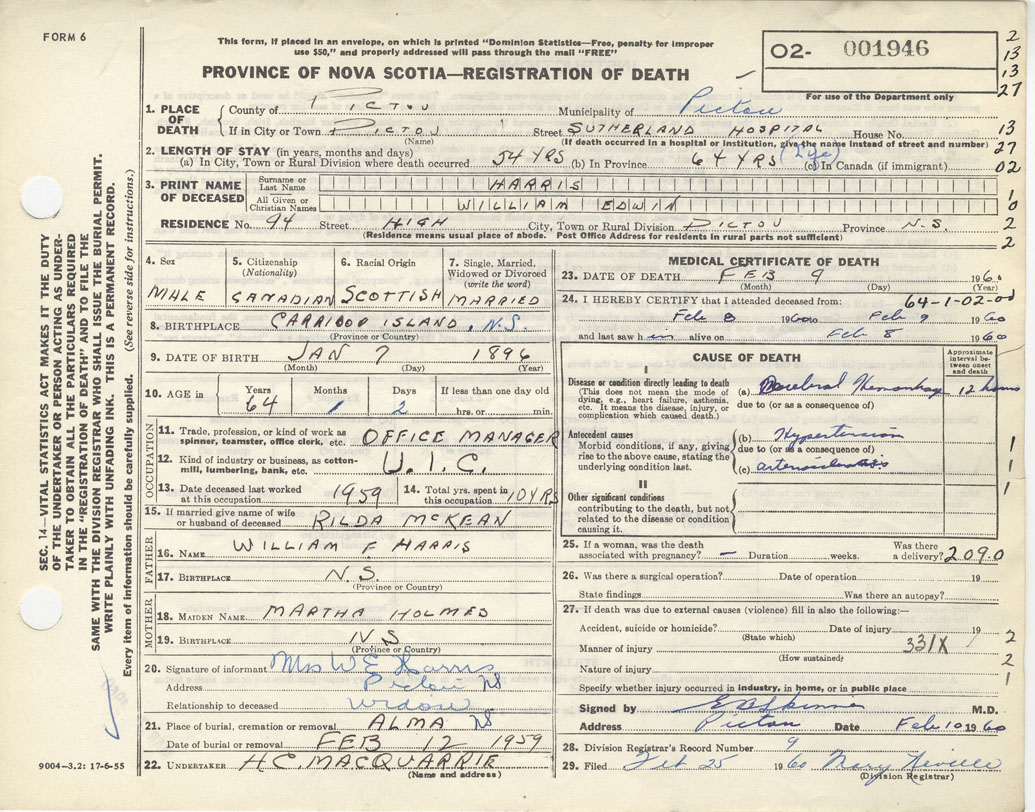 FORM 6
This form, if placed in an envelope, on which is printed "Dominion Statistics—Free, penalty for improper
use $50," and properly addressed will pass through the mail "FREE"
PROVINCE OF NOVA SCOTIA—REGISTRATION OF DEATH
02- 001946
For use of the Department only
2
13
13
27
1. PLACE OF DEATH
County of PICTOU
Municipality of Pictou
If in City or Town PICTOU
(Name)
Street SUTHERLAND HOSPITAL House No.
(If death occurred in a hospital or institution, give the name instead of street and number)
13
27
02
2. LENGTH OF STAY (in years, months and days)
(a) In City, Town or Rural Division where death occurred 54 YRS (b) In Province 64 YRS (Life) (c) In Canada (if immigrant)
3. PRINT NAME OF DECEASED
Surname or Last Name HARRIS
All Given or Christian Names WILLIAM EDWIN
1
0
2
2
RESIDENCE No. 94 Street HIGH City, Town or Rural Division PICTOU Province N.S.
(Residence means usual place of abode. Post Office Address for residents in rural parts not sufficient)
SEC. 14—VITAL STATISTICS ACT MAKES IT THE DUTY
OF THE UNDERTAKER OR PERSON ACTING AS UNDER-
TAKER TO OBTAIN ALL THE PARTICULARS REQUIRED
IN THE "REGISTRATION OF DEATH" AND TO FILE THE
SAME WITH THE DIVISION REGISTRAR WHO SHALL ISSUE THE BURIAL PERMIT.
WRITE PLAINLY WITH UNFADING INK. THIS IS A PERMANENT RECORD.
Every item of information should be carefully supplied. (See reverse side for instructions.)
4. Sex
MALE
5. Citizenship
(Nationality)
CANADIAN
6. Racial Origin
SCOTTISH
7. Single, Married,
Widowed or Divorced
(write the word)
MARRIED
8. BIRTHPLACE CARRIBOO ISLAND, N.S.
(Province or Country)
9. DATE OF BIRTH JAN 7 1896
(Month) (Day) (Year)
10. AGE in
Years 64
Months 1
Days 2
If less than one day old
hrs. or min.
OCCUPATION
11. Trade, profession, or kind of work as
spinner, teamster, office clerk, etc. OFFICE MANAGER
12. Kind of industry or business, as cotton-
mill, lumbering, bank, etc. U.I.C.
13. Date deceased last worked
at this occupation 1959
14. Total yrs. spent in
this occupation 10 YRS
15. If married give name of wife
or husband of deceased RILDA MCKEAN
FATHER
16. NAME WILLIAM F HARRIS
17. BIRTHPLACE N.S.
(Province or Country)
MOTHER
18. MAIDEN NAME MARTHA HOLMES
19. BIRTHPLACE N S
(Province or Country)
20. Signature of informant Mrs W E Harris
Address Pictou NS
Relationship to deceased widow
21. Place of burial, cremation or removal ALMA NS
Date of burial or removal FEB 12 1959
22. UNDERTAKER H.C. MACQUARRIE
(Name and address)
9004—3.2: 17-6-55
MEDICAL CERTIFICATE OF DEATH
23. DATE OF DEATH FEB 9 1960
(Month) (Day) (Year)
24. I HEREBY CERTIFY that I attended deceased from: 64-1-02-00
Feb 8 1960 to Feb 9 1960
and last saw him alive on Feb 8 1960
CAUSE OF DEATH
Approximate
interval be-
tween onset
and death
I
Disease or condition directly leading to death
(This does not mean the mode of
dying, e.g., heart failure, asthenia,
etc. It means the disease, injury, or
complication which caused death.)
(a) Cerebral Hemorrhage 12 hours
due to (or as a consequence of)
Antecedent causes
Morbid conditions, if any, giving
rise to the above cause, stating the
underlying condition last.
(b) Hypertension
due to (or as a consequence of)
(c) arteriosclerosis
1
1
1
II
Other significant conditions
contributing to the death, but not
related to the disease or condition
causing it.
25. If a woman, was the death
associated with pregnancy? — Duration weeks. Was there
a delivery? 2090
26. Was there a surgical operation? Date of operation 19
State findings Was there an autopsy?
27. If death was due to external causes (violence) fill in also the following:—
Accident, suicide or homicide? Date of injury 19
(State which)
Manner of injury 331X
(How sustained)
Nature of injury
2
2
1
Specify whether injury occurred in industry, in home, or in public place
Signed by M.D.
Address Pictou Date Feb 10 1960
28. Division Registrar's Record Number 9
29. Filed Feb 25 1960 Mary Neville
(Division Registrar)